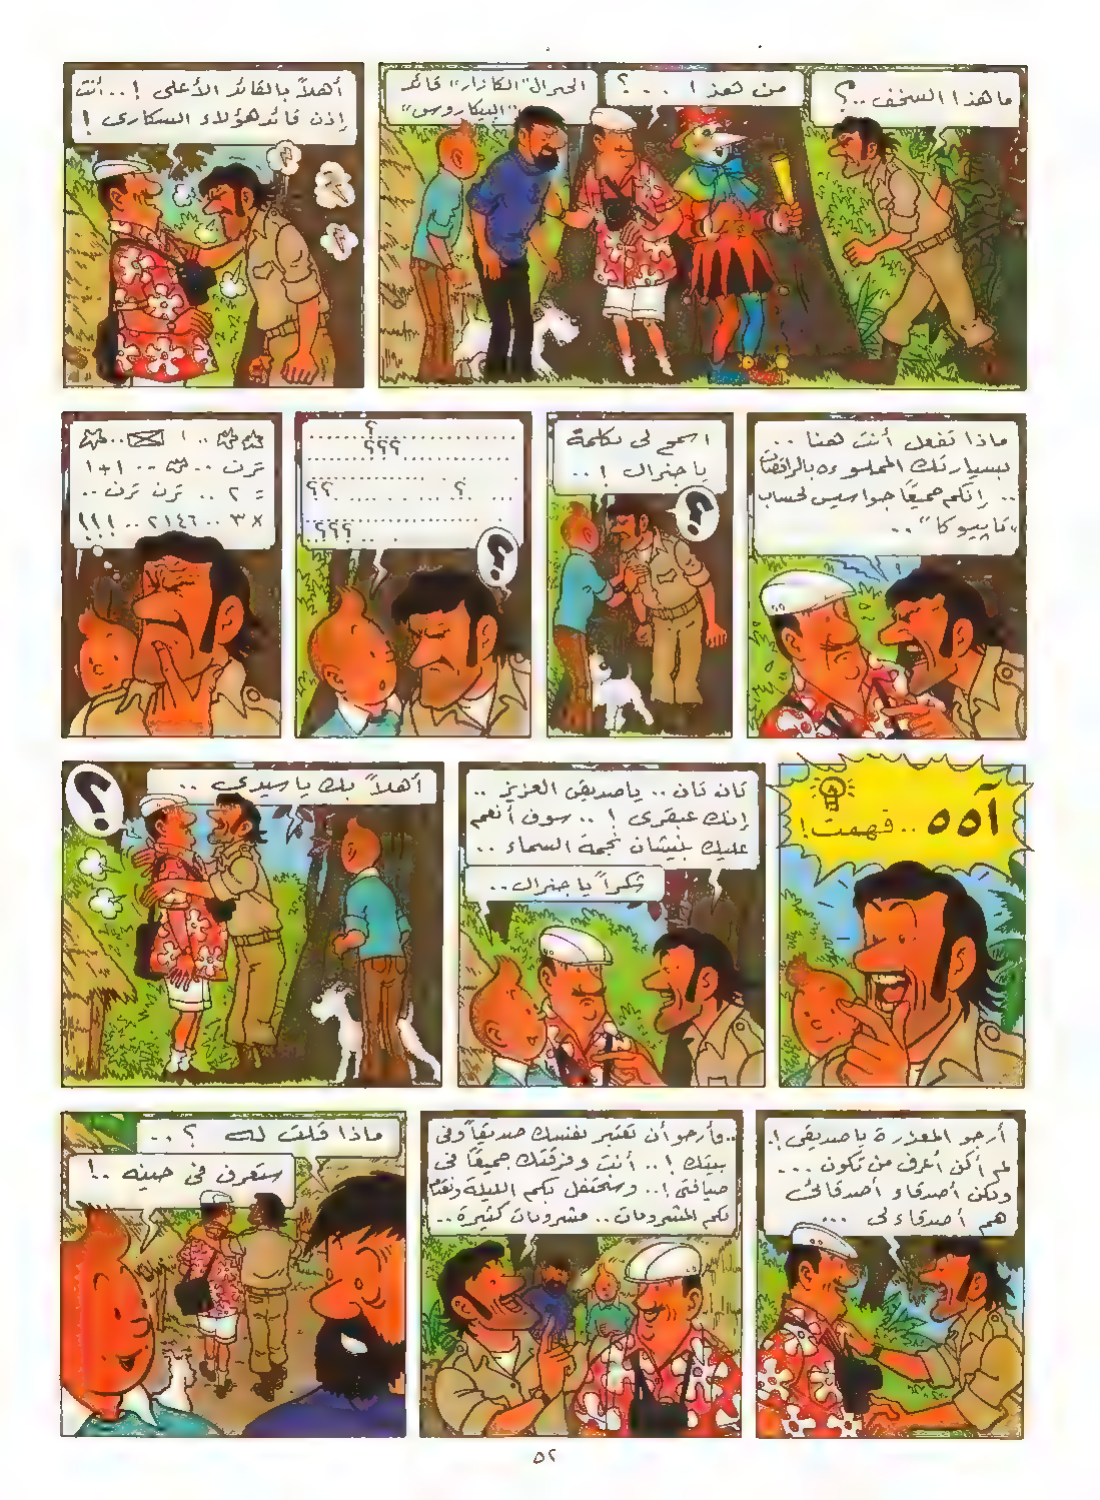 ما هذا السخف ..؟
من هذا ...؟
الجنرال "الكازار" قائد
"البيكاروس"
أهلاً بالقائد الأعلى !..أنت
إذن قائد هؤلاء السكارى !
ماذا تفعل أنت هنا ..
بسيارتك المملوءة بالراقصات
.. إنكم جميعًا جواسيس لحساب
"تابيوكا" ..
اسمح لى بكلمة
يا جنرال !..
؟
؟
؟؟؟
؟؟ ؟
؟؟؟
؟
! ..
ترن .. س .. ١+١
= ٢ .. ترن ترن ..
× ٣ .. ٢١٤٦ .. !!!
آه ه ..فهمت !
تان تان .. يا صديقى العزيز ..
إنك عبقرى ! .. سوف أنعم
عليك بنيشان نجمة السماء ..
شكراً يا جنرال ..
أهلاً بك يا سيدى ..
؟
أرجو المعذرة يا صديقى !.
لم أكن أعرف من تكون ...
ولكن أصدقاء أصدقائى
هم أصدقاء لى ...
..وأرجو أن تعتبر نفسك صديقاً وفى
بيتك !.. أنت وفرقتك جميعًا فى
ضيافتى !.. وسنحتفل بكم الليلة ونقدم
لكم المشروبات .. مشروبات كثيرة ..
ماذا قلت له ؟ ..
ستعرف فى حينه ..!
٥٢